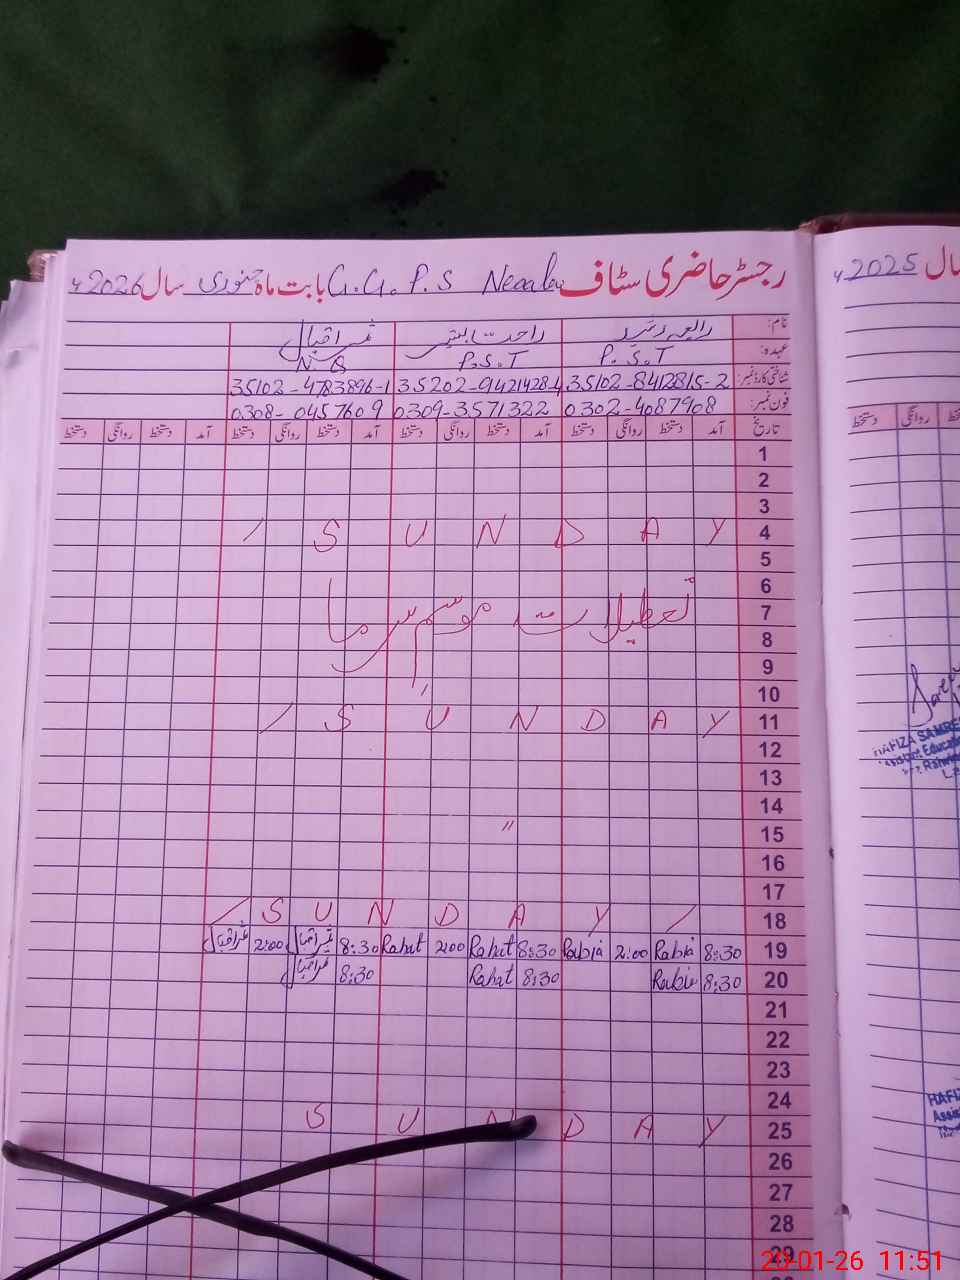 رجسٹر حاضری سٹاف G.G.P.S بابت ماہ جنوری سال 2026ء
نام: رابعہ رشید راحت
عہدہ: P.S.T P.S.T N.Q
شناختی کارڈ نمبر: 35102-8412815-2 35202-9421428-4 35102-4783896-1
فون نمبر: 0302-4087908 0309-3571322 0308-0457609
تاریخ آمد دستخط روانگی دستخط آمد دستخط روانگی دستخط آمد دستخط روانگی دستخط آمد دستخط روانگی دستخط
1
2
3
4 SUNDAY
5
6
7 تعطیلات موسم سرما
8
9
10
11 SUNDAY
12
13
14
15 "
16
17
18 SUNDAY
19 8:30 Rabia 2:00 Rabia 8:30 Rahat 2:00 Rahat 8:30 2:00
20 8:30 Rabia 8:30 Rahat 8:30
21
22
23
24
25 SUNDAY
26
27
28
29
سال 2025ء
روانگی دستخط
HAFIZA SAMRE
Assistant Educa
HAFIZ
Assis
20-01-26 11:51